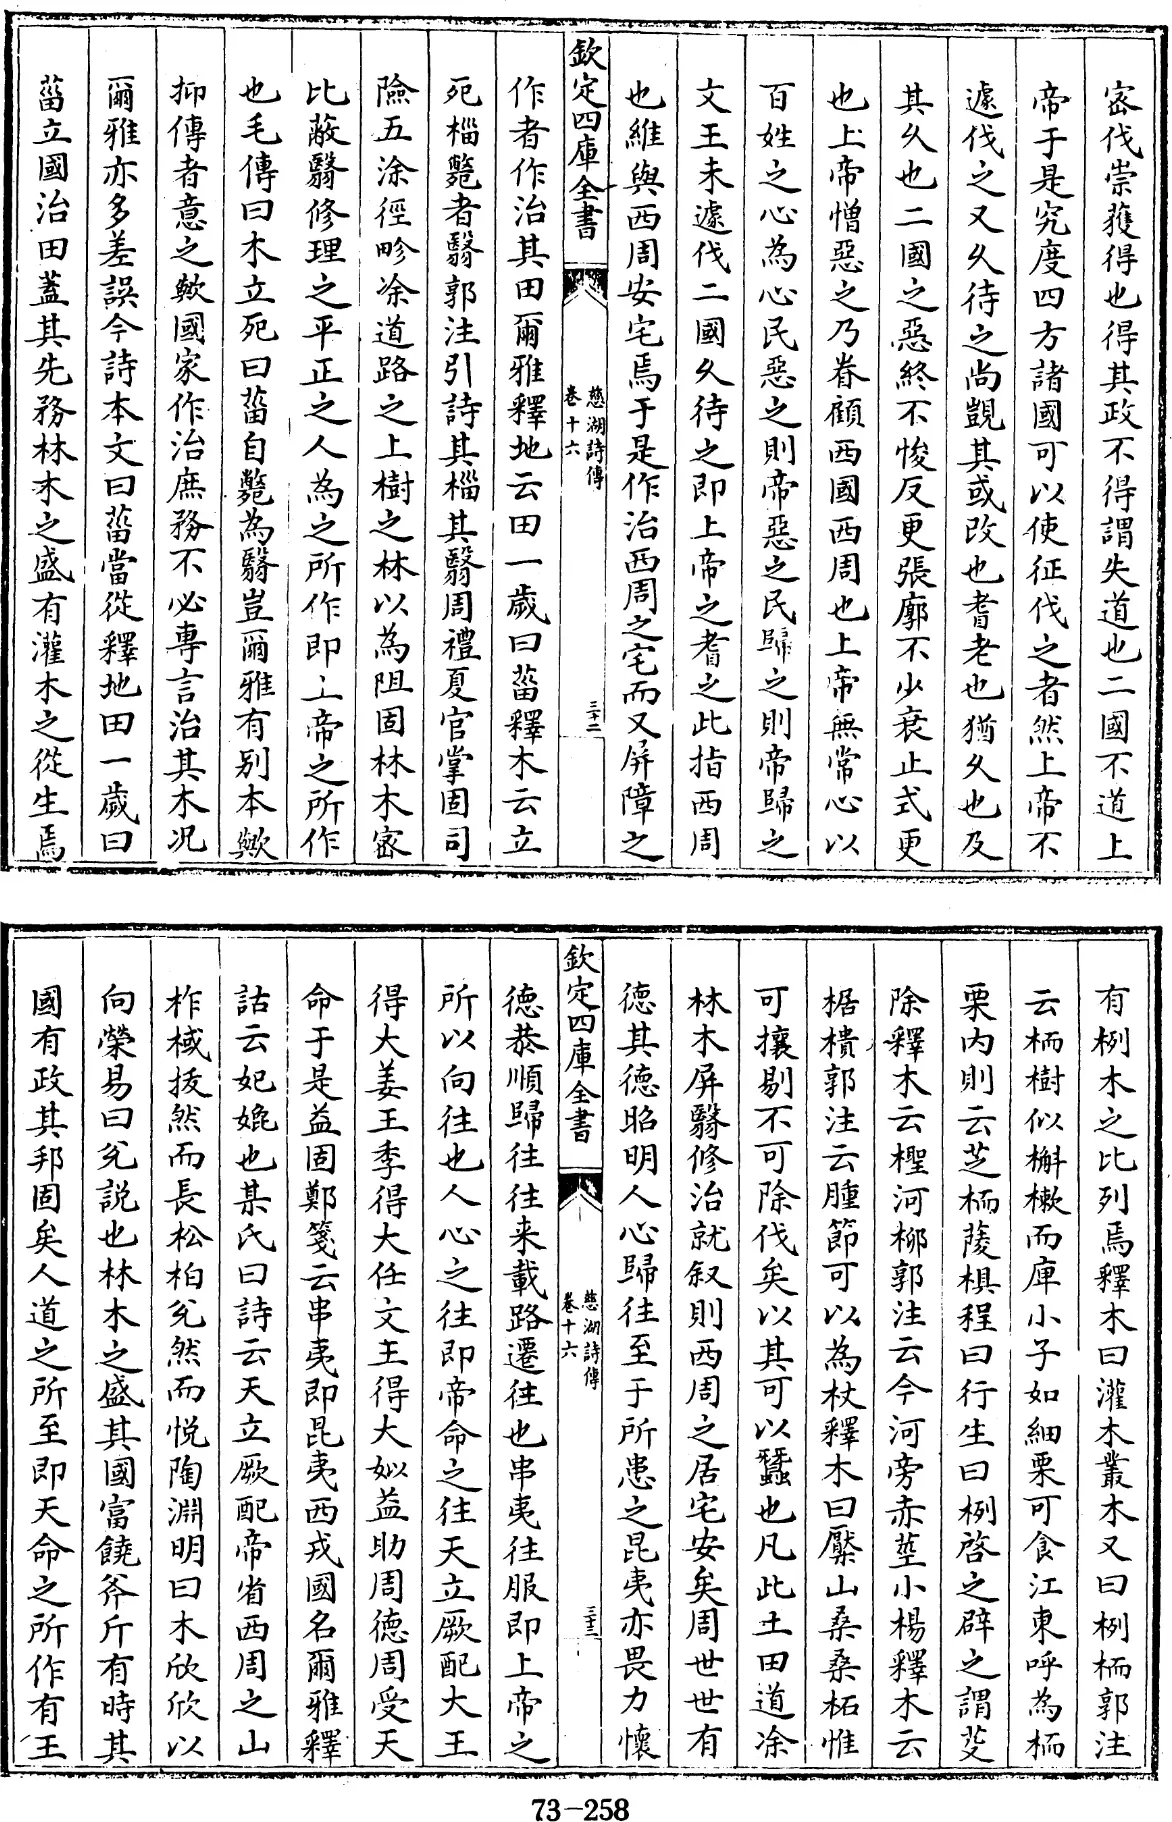 密伐崇獲得也得其政不得謂失道也二國不道上
帝于是究度四方諸國可以使征伐之者然上帝不
遽伐之又久待之尚覬其或改也耆老也猶久也及
其久也二國之惡終不悛反更張廓不少衰止式更
也上帝憎惡之乃眷顧西國西周也上帝無常心以
百姓之心為心民惡之則帝惡之民歸之則帝歸之
文王未遽伐二國久待之即上帝之耆之此指西周
也維與西周安宅焉于是作治西周之宅而又屏障之
欽定四庫全書
慈湖詩傳
卷十六
三十二
作者作治其田爾雅釋地云田一歲曰菑釋木云立
死椔斃者翳郭注引詩其椔其翳周禮夏官掌固司
險五涂徑畛涂道路之上樹之林以為阻固林木密
比蔽翳修理之平正之人為之所作即上帝之所作
也毛傳曰木立死曰菑自斃為翳豈爾雅有别本歟
抑傳者意之歟國家作治庶務不必專言治其木况
爾雅亦多差誤今詩本文曰菑當從釋地田一歲曰
菑立國治田蓋其先務林木之盛有灌木之從生焉
有栵木之比列焉釋木曰灌木叢木又曰栵栭郭注
云栭樹似槲樕而庳小子如細栗可食江東呼為栭
栗内則云芝栭蔆椇程曰行生曰栵啓之辟之謂芟
除釋木云檉河栁郭注云今河旁赤莖小楊釋木云
椐樻郭注云腫節可以為杖釋木曰檿山桑桑柘惟
可攘剔不可除伐矣以其可以蠶也凡此土田道涂
林木屏翳修治就叙則西周之居宅安矣周世世有
德其德昭明人心歸往至于所患之昆夷亦畏力懷
欽定四庫全書
慈湖詩傳
卷十六
三十三
德恭順歸往往来載路遷往也串夷往服即上帝之
所以向往也人心之往即帝命之往天立厥配大王
得大姜王季得大任文王得大姒益助周德周受天
命于是益固鄭箋云串夷即昆夷西戎國名爾雅釋
詁云妃媲也某氏曰詩云天立厥配帝省西周之山
柞棫拔然而長松柏兊然而悦陶淵明曰木欣欣以
向榮易曰兊説也林木之盛其國富饒斧斤有時其
國有政其邦固矣人道之所至即天命之所作有王
73-258